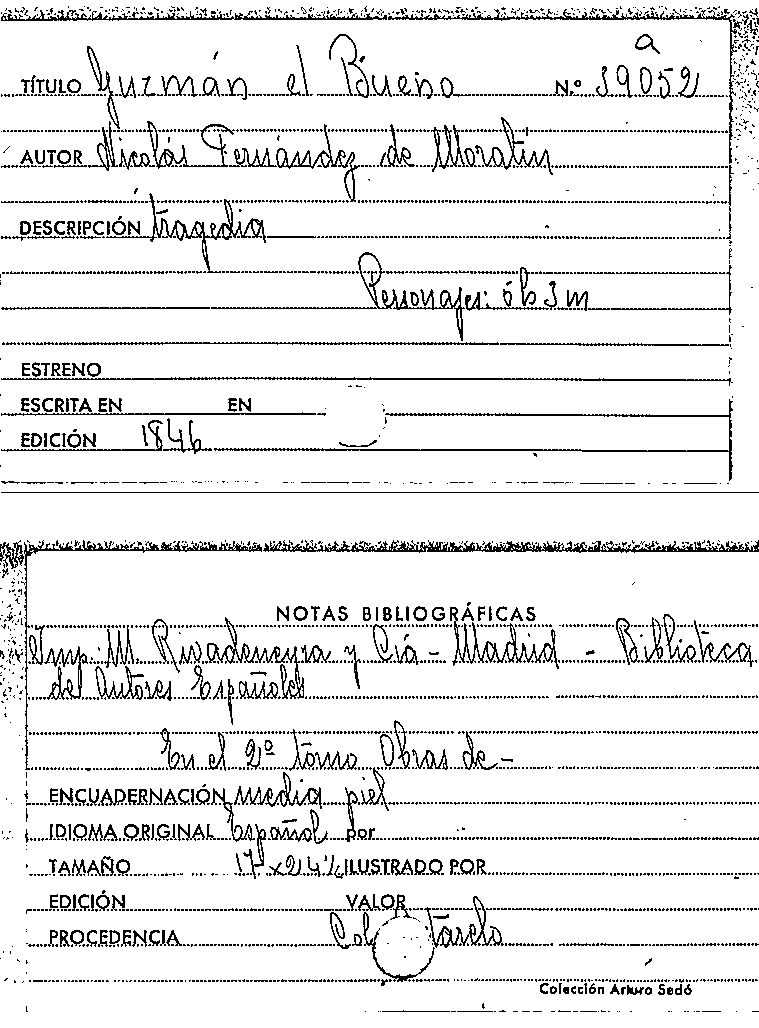 a
TÍTULO Guzmán el Bueno N.º 39052
AUTOR Nicolás Fernández de Moratín
DESCRIPCIÓN tragedia
Personajes: 6h 3m
ESTRENO
ESCRITA EN EN
EDICIÓN 1846
NOTAS BIBLIOGRÁFICAS
Imp. M. Rivadeneyra y Cía - Madrid - Biblioteca
del Autores Españoles
En el 2º tomo Obras de -
ENCUADERNACIÓN media piel
IDIOMA ORIGINAL Español por
TAMAÑO 17 x 24½ ILUSTRADO POR
EDICIÓN VALOR
PROCEDENCIA Col tarelo
Colección Arturo Sedó